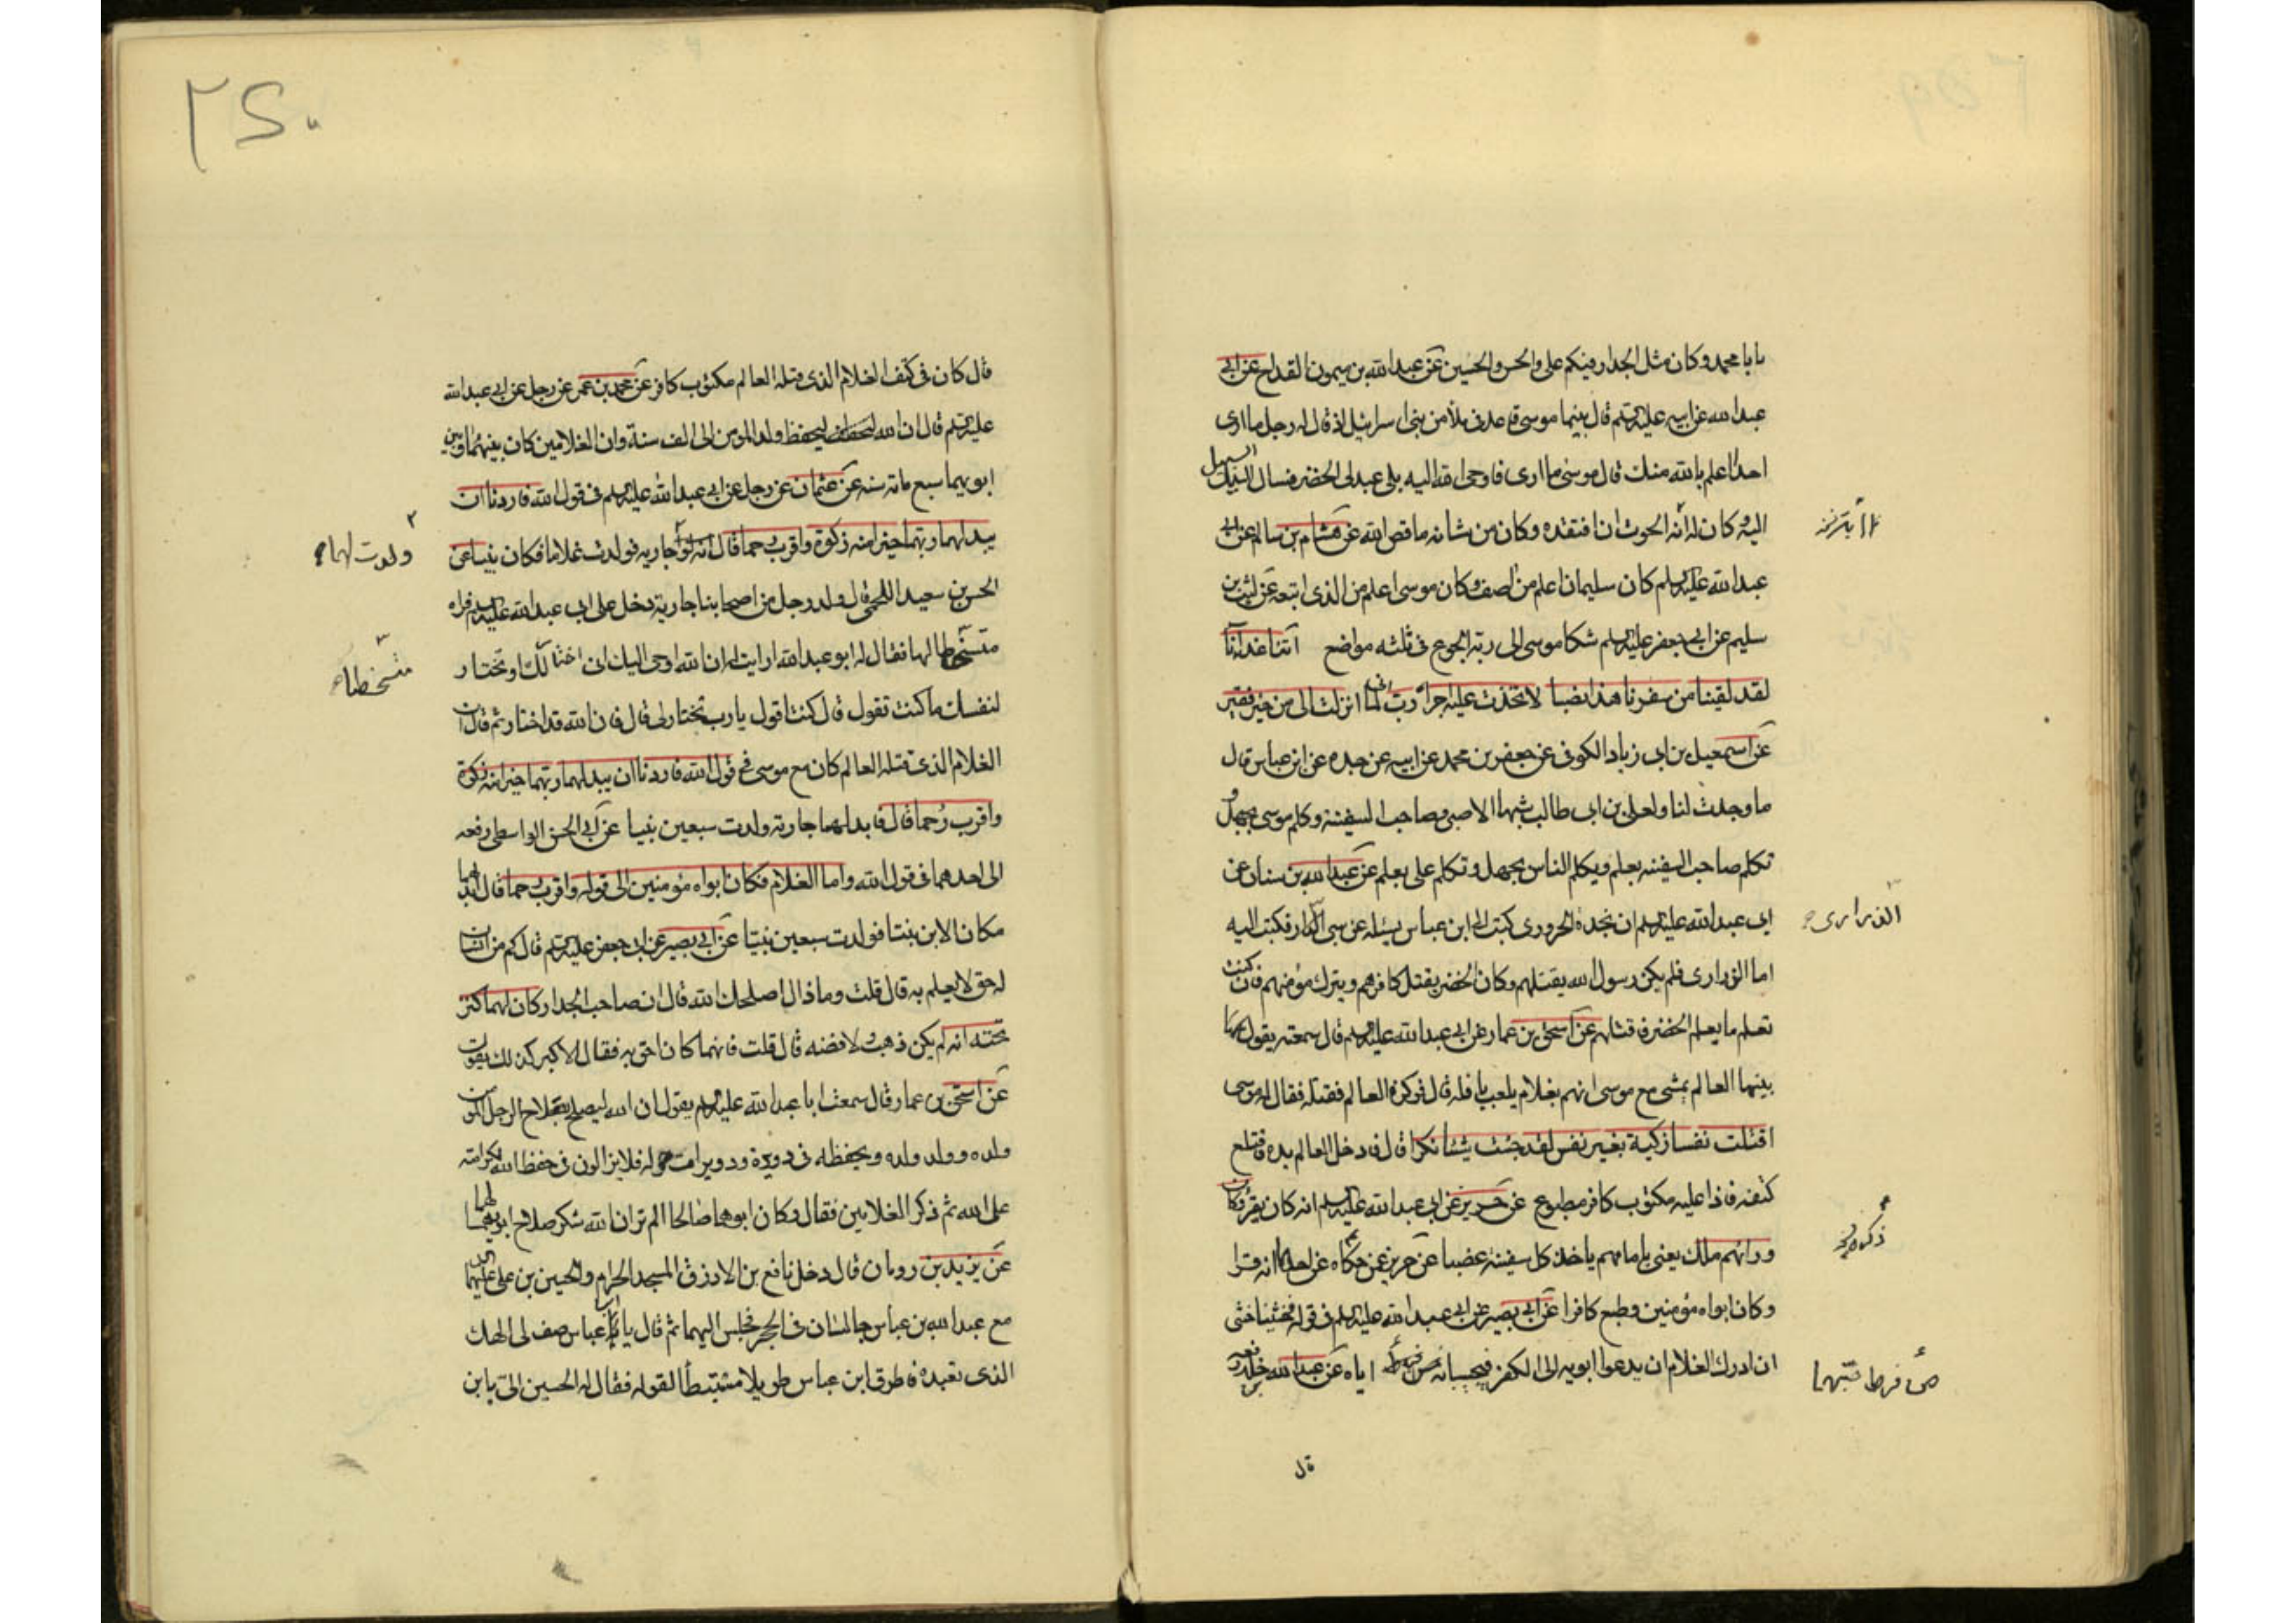 بابا محمد وكان مثل الجدار فيكم على والحسن والحسين عن عبد الله بن ميمون القداح عن ابى
عبد الله عن ابيه عليه السلم قال بينما موسى قاعد فى ملأ من بنى اسرائيل اذ قال له رجل ما ارى
احدا اعلم بالله منك قال موسى ما ارى فاوحى الله اليه بلى عبدى الخضر فسال السبيل
اليه وكان له آية الحوت ان افتقده وكان من شانه ما قص الله عن هشام بن سالم عن ابى
عبد الله عليه السلم كان سليمان اعلم من اصف وكان موسى اعلم من الذى اتبعه عن ليث بن
سليم عن ابى جعفر عليه السلم شكا موسى الى ربه الجوع فى ثلثه مواضع آتنا غدائنا
لقد لقينا من سفرنا هذا نصبا لاتخذت عليه اجرا رب انى لما انزلت الى من خير فقير
عن اسمعيل بن ابى زياد الكوفى عن جعفر بن محمد عن ابيه عن جده عن ابن عباس قال
ما وجدت لنا ولعلى بن ابى طالب شبها الا موسى وصاحب السفينة وكلم موسى بجهل و
تكلم صاحب السفينه بعلم ويكلم الناس بجهل وتكلم على بعلم عن عبد الله بن سنان عن
ابى عبد الله عليه السلم ان نجدة الحرورى كتب الى ابن عباس يسئله عن سبى الذرارى فكتب اليه
اما الذرارى فلم يكن رسول الله يقتلهم وكان الخضر يقتل كافرهم ويترك مؤمنهم فان كنت
تعلم ما يعلم الخضر فاقتلهم عن اسحق بن عمار عن ابى عبد الله عليه السلم قال سمعته يقول
بينما العالم يمشى مع موسى اذ هم بغلام يلعب قال فوكزه العالم فقتله فقال له موسى
اقتلت نفسا زكية بغير نفس لقد جئت شيئا نكرا قال فادخل العالم يده فاقتلع
كتفه فاذا عليه مكتوب كافر مطبوع عن حريز عن ابى عبد الله عليه السلم انه كان يقرء وكان
ورائهم ملك يعنى امامهم ياخذ كل سفينة غصبا عن حريز عن ذكره عن احدهما انه قرا
وكان ابواه مؤمنين وطبع كافرا عن ابى بصير عن ابى عبد الله عليه السلم فى قوله فخشينا خشى
ان ادرك الغلام ان يدعوا ابويه الى الكفر فيجيبانه من فرط اياه عن عبد الله بن خلد رفعه
قال
الذرارى
ذكره
من فرط حبهما
٢٤٠
قال كان فى كتف الغلام الذى قتله العالم مكتوب كافر عن محمد بن عمر عن رجل عن ابى عبد الله
عليه السلم قال ان الله ليحفظ ولد المومن الى الف سنة وان الغلامين كان بينهما وبين
ابويهما سبع مائة سنه عن عثمان عن رجل عن ابى عبد الله عليه السلم فى قول الله فاردنا ان
يبدلهما ربهما خيرا منه زكوة واقرب رحما قال انه ولد جاريه فولدت غلاما فكان نبيا عن
الحسن بن سعيد اللحمى قال ولد رجل من اصحابنا جارية دخل على ابى عبد الله عليه السلم فراه
متسخطا لها فقال له ابو عبد الله ارايت لو ان الله اوحى اليك انى اختار لك او تختار
لنفسك ما كنت تقول قال كنت اقول يا رب تختار لى قال فان الله قد اختار ثم قال ان
الغلام الذى قتله العالم كان مع موسى فى قول الله فاردنا ان يبدلهما ربهما خيرا منه زكوة
واقرب رحما قال فابدلهما جارية ولدت سبعين نبيا عن ابى الحسن الواسطى رفعه
الى احدهما فى قول الله واما الغلام فكان ابواه مؤمنين الى قوله واقرب رحما قال ابدلهما
مكان الابن بنتا فولدت سبعين نبيا عن ابى بصير عن ابى جعفر عليه السلم قال كم من انسان
له حق لا يعلم به قال قلت وما ذاك اصلحك الله قال ان صاحب الجدار كان لهما كنز
تحته انه لم يكن ذهب ولا فضه قال قلت فايهما كان احق به فقال الاكبر كذلك يقول
عن اسحق بن عمار قال سمعت ابا عبد الله عليه السلم يقول ان الله ليصلح بصلاح الرجل المومن
ولده وولد ولده ويحفظه فى دويرته ودويرات حوله فلا يزالون فى حفظ الله لكرامته
على الله ثم ذكر الغلامين فقال وكان ابوهما صالحا الم تر ان الله شكر صلاح ابويهما لهما
عن يزيد بن رومان قال دخل نافع بن الازرق المسجد الحرام والحسين بن على عليهما السلم
مع عبد الله بن عباس جالسان فى الحجر فجلس اليهما ثم قال يا ابن عباس صف لى الهك
الذى تعبده فاطرق ابن عباس طويلا مستبطأ لقوله فقال له الحسين الى يابن
ولدت لهما
متسخطا